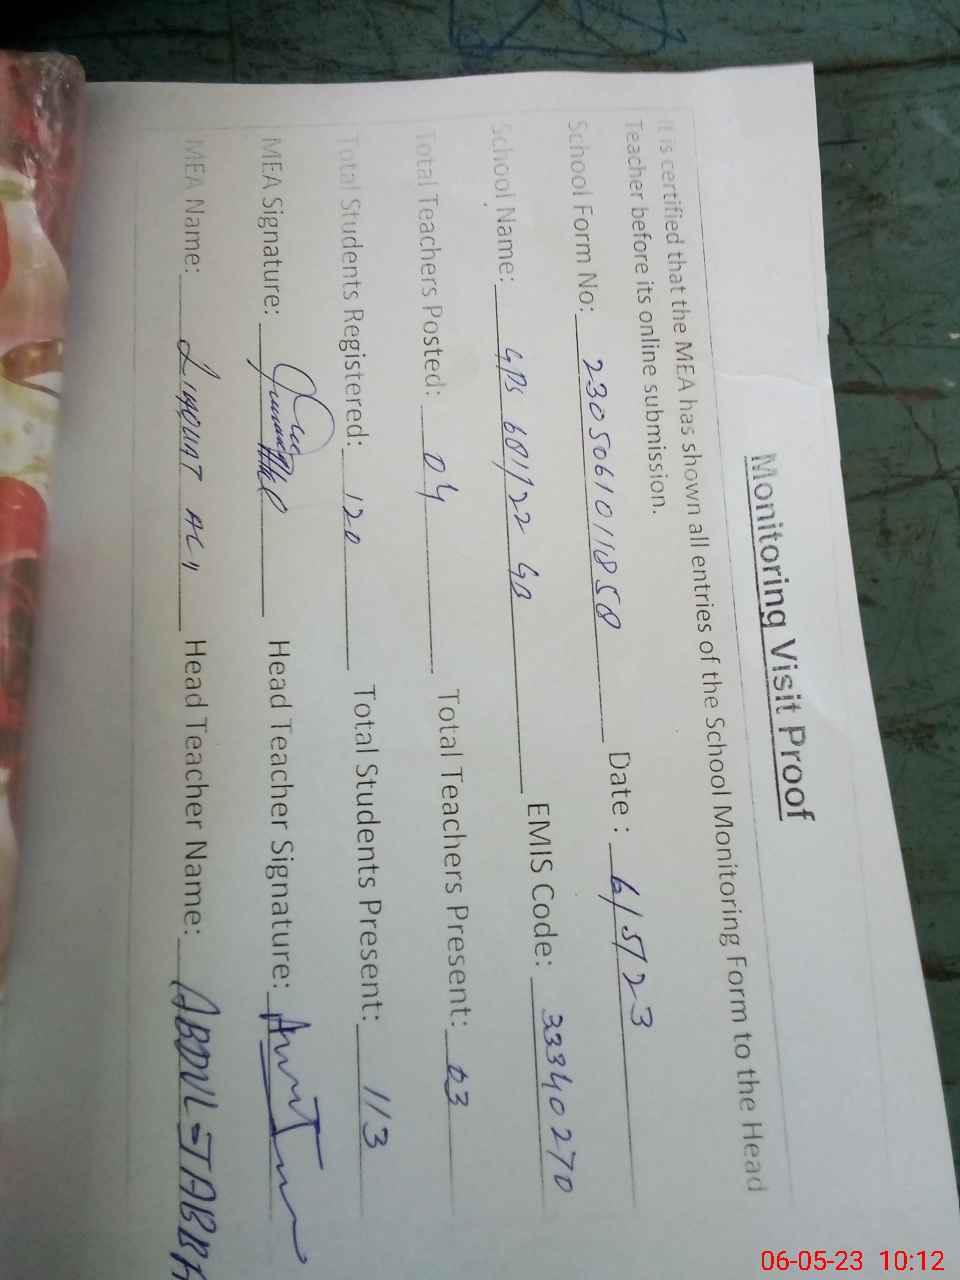 Monitoring Visit Proof
It is certified that the MEA has shown all entries of the School Monitoring Form to the Head
Teacher before its online submission.
School Form No: 2305061011858 Date : 6/5/23
School Name: GPS 681/22 GB EMIS Code: 33340270
Total Teachers Posted: 04 Total Teachers Present: 03
Total Students Registered: 120 Total Students Present: 113
MEA Signature: Head Teacher Signature:
MEA Name: Liaquat Ali Head Teacher Name: ABDUL JABBA
06-05-23 10:12